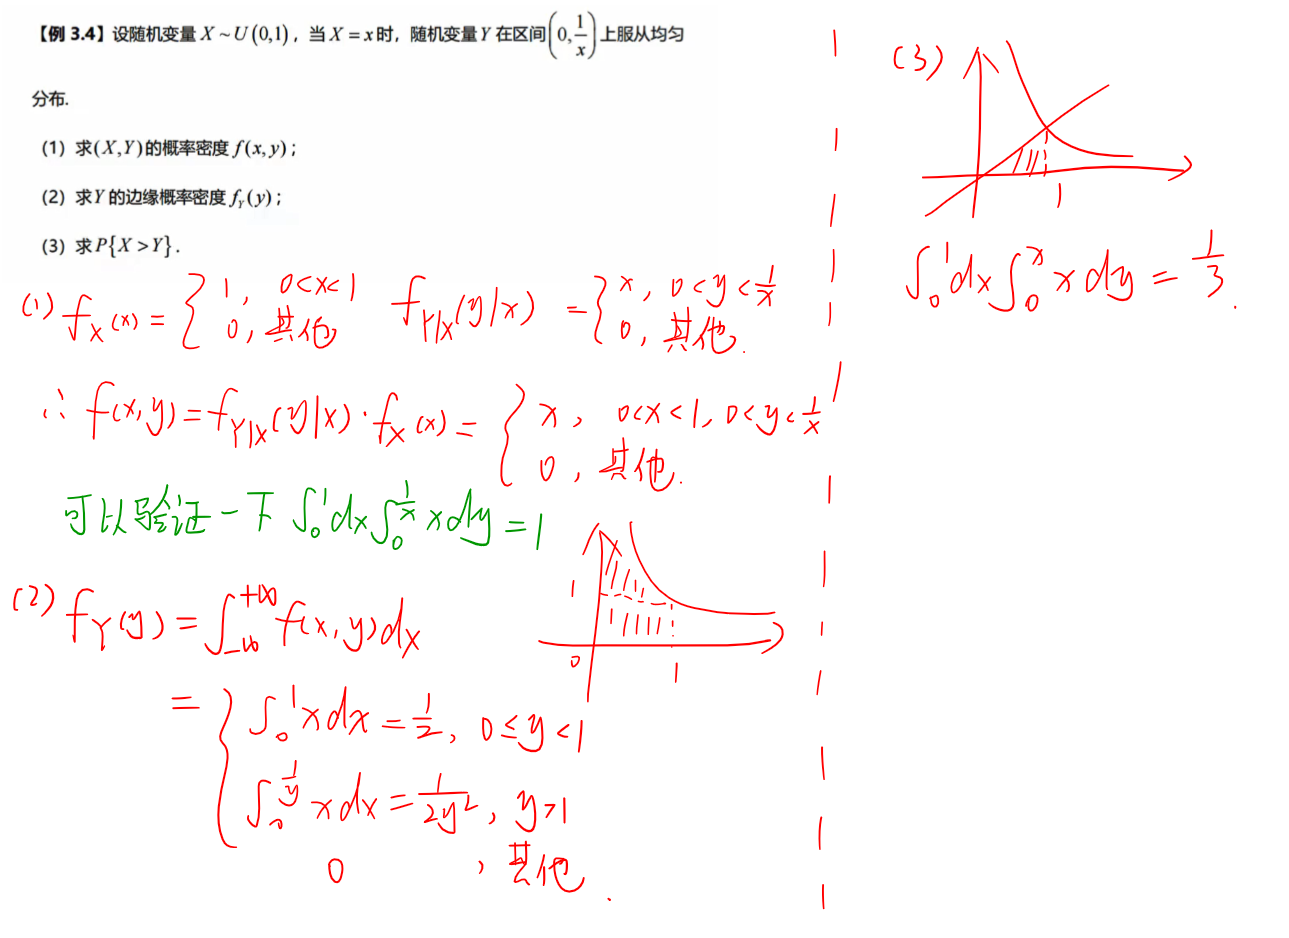 【例 3.4】设随机变量 X ~ U(0,1)，当 X = x 时，随机变量 Y 在区间 (0, 1/x) 上服从均匀
分布.
(1) 求(X,Y)的概率密度 f(x,y)；
(2) 求Y 的边缘概率密度 f_Y(y)；
(3) 求P{X > Y}.
(1) f_X(x) = { 1, 0<x<1  f_{Y|X}(y|x) = { x, 0<y<1/x
0, 其他  0, 其他.
∴ f(x,y) = f_{Y|X}(y|x)·f_X(x) = { x, 0<x<1, 0<y<1/x
0, 其他.
可以验证一下 ∫_0^1 dx ∫_0^{1/x} x dy = 1
(2) f_Y(y) = ∫_{-∞}^{+∞} f(x,y)dx
= { ∫_0^1 x dx = 1/2, 0≤y<1
∫_0^{1/y} x dx = 1/(2y^2), y>1
0, 其他.
1
0
1
(3)
1
∫_0^1 dx ∫_0^x x dy = 1/3.